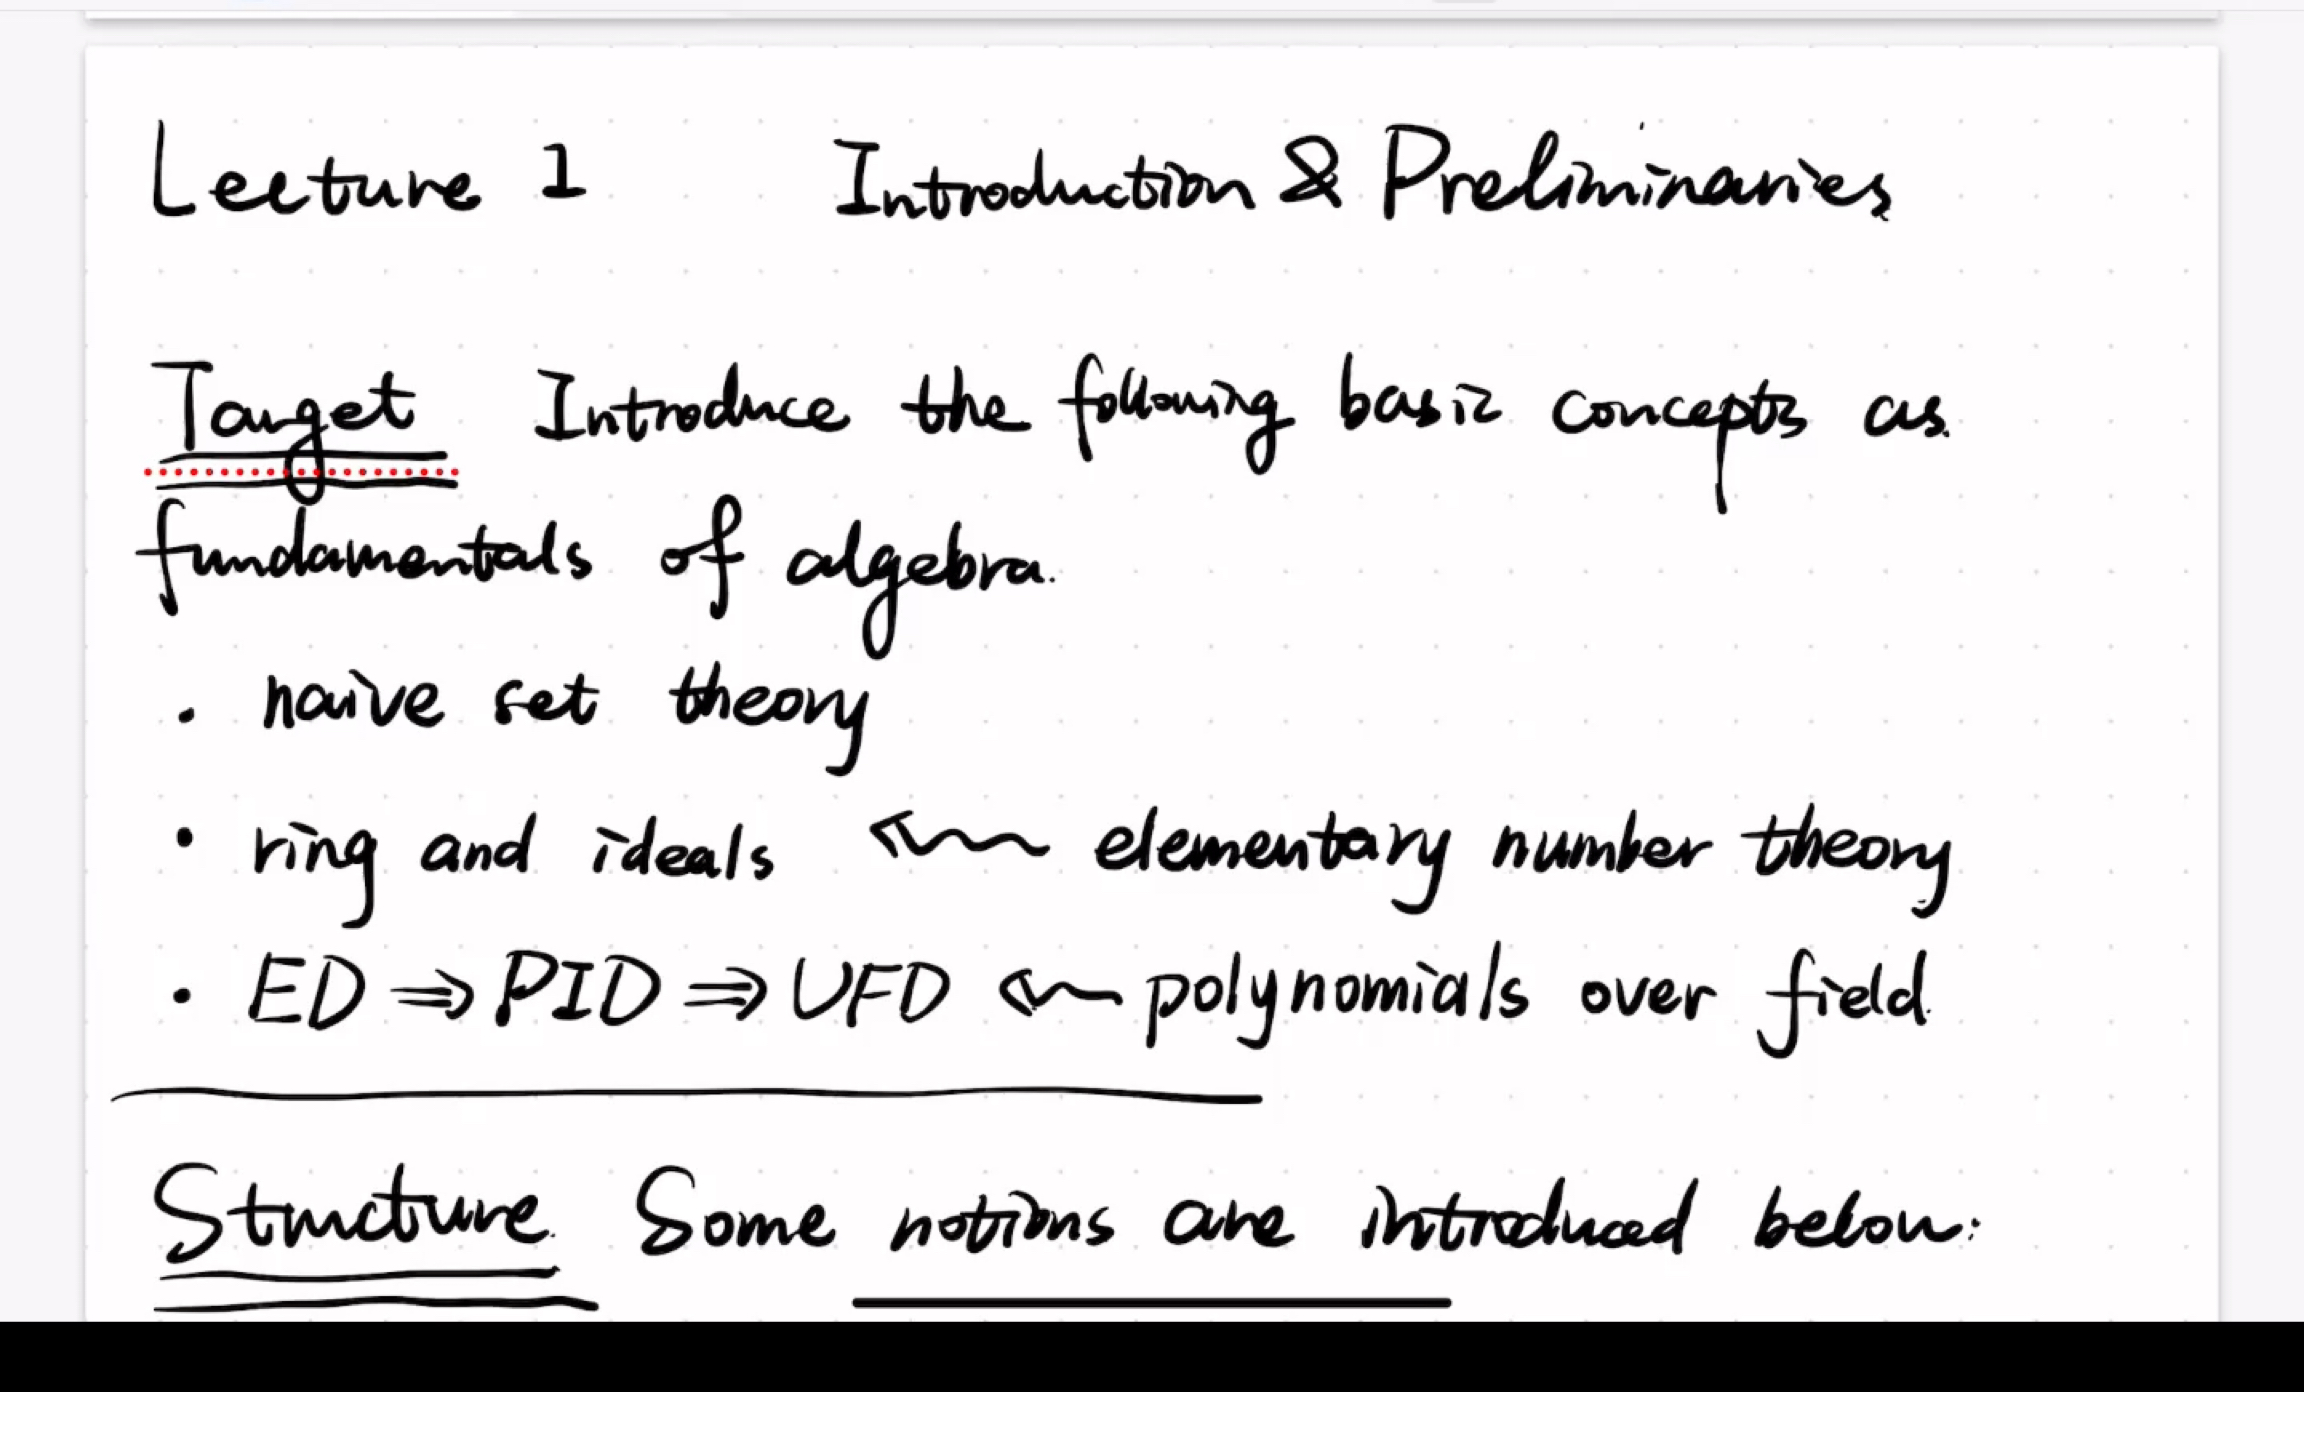 Lecture 1 Introduction & Preliminaries
Target Introduce the following basic concepts as
fundamentals of algebra.
• naïve set theory
• ring and ideals ⇜ elementary number theory
• ED ⇒ PID ⇒ UFD ⇜ polynomials over field.
Structure. Some notions are introduced below: